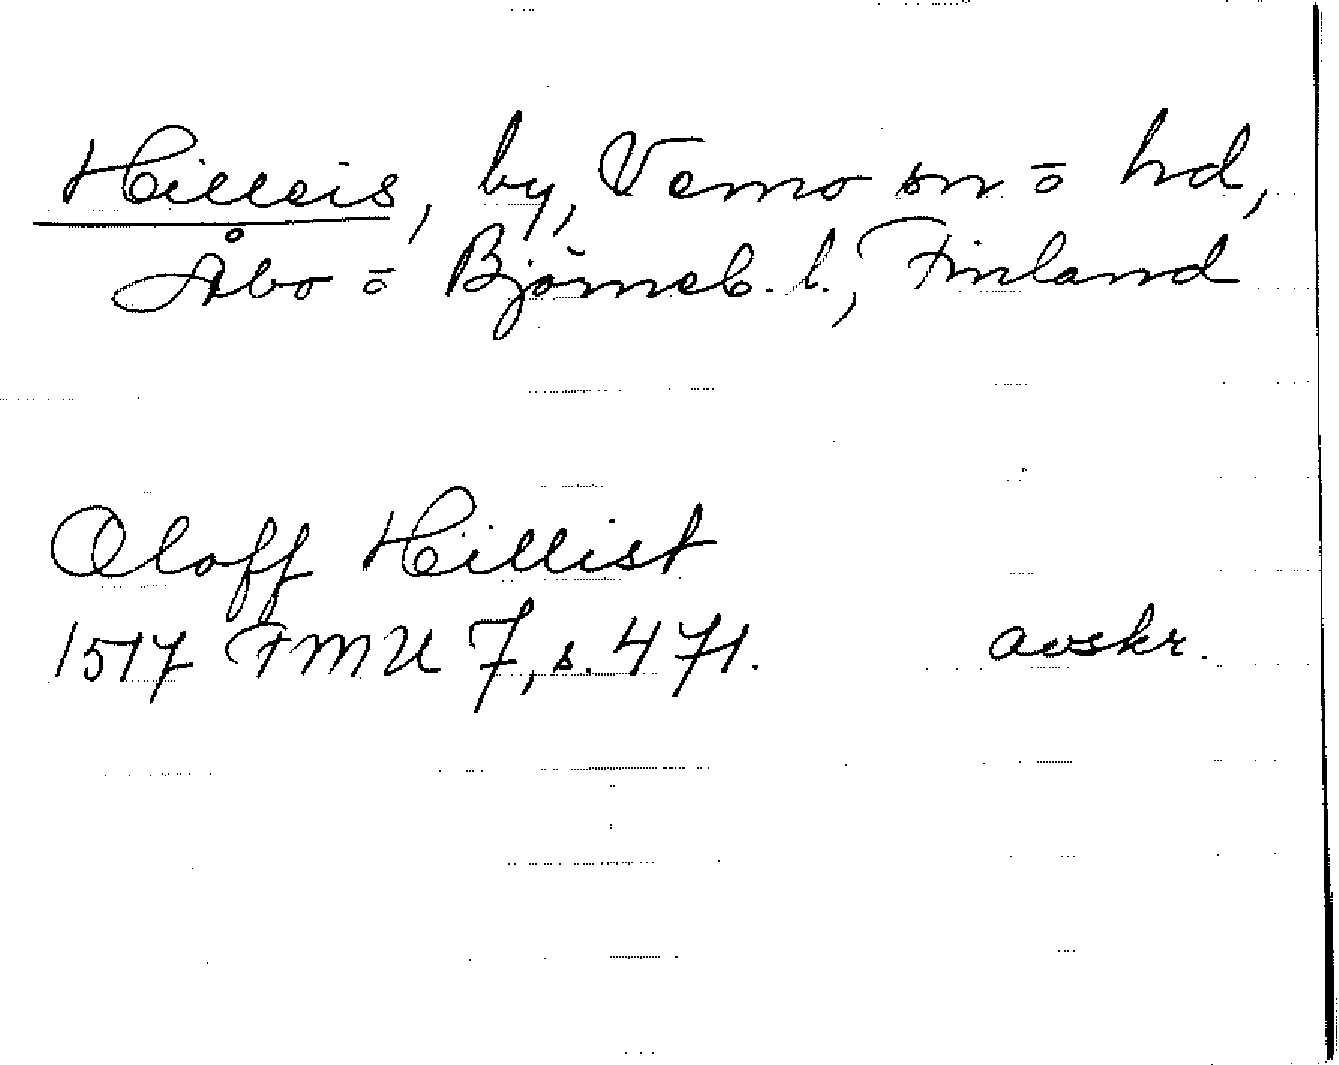 Hilleis, by, Vemo sn = hd,
Åbo = Björneb. l., Finland
Oloff Hillist
1517 FMU 7, s. 471. avskr.